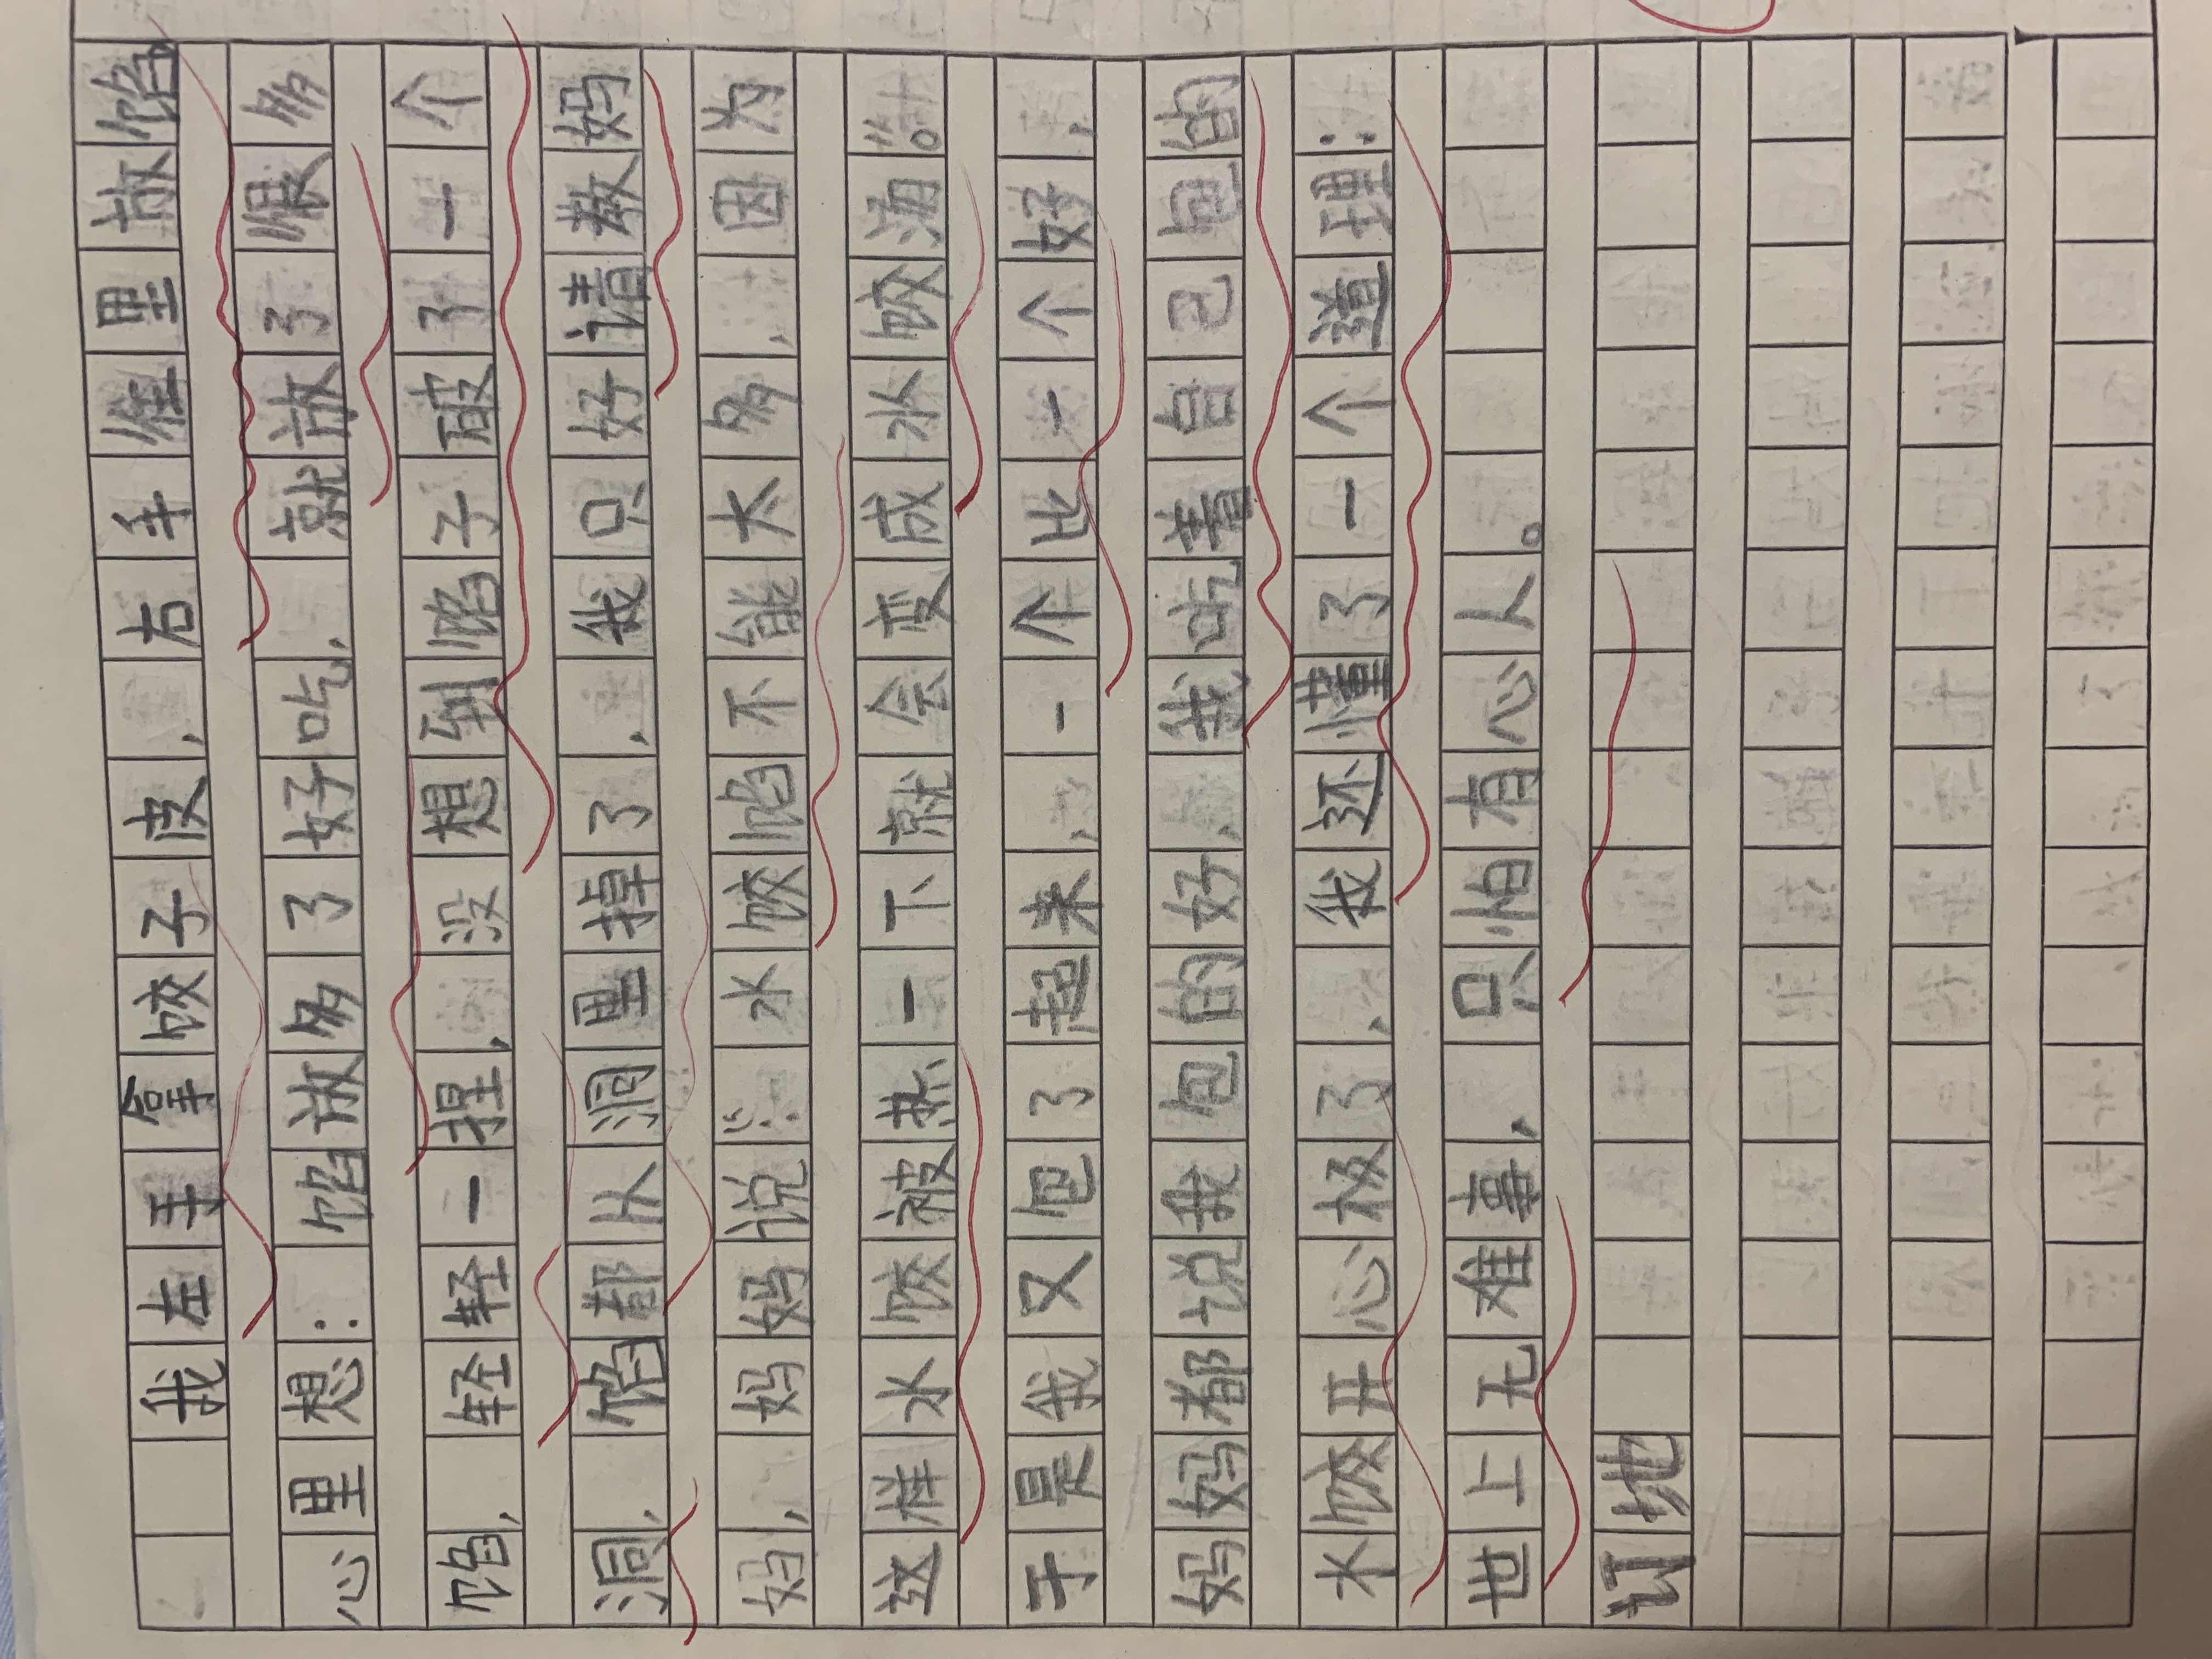 我左手拿饺子皮，右手往里放馅
心里想：馅放多了好吃，就放了很多
馅，轻轻一捏，没想到馅子破了一个
洞，馅都从洞里掉了，我只好请教妈
妈，妈妈说：“水饺馅不能太多，因为
这样水饺被热一下就会变成水饺海”。
于是我又包了起来，一个比一个好，
妈妈都说我包的好，我吃着自己包的
水饺开心极了，我还懂了一个道理：
世上无难事，只怕有心人。
订地